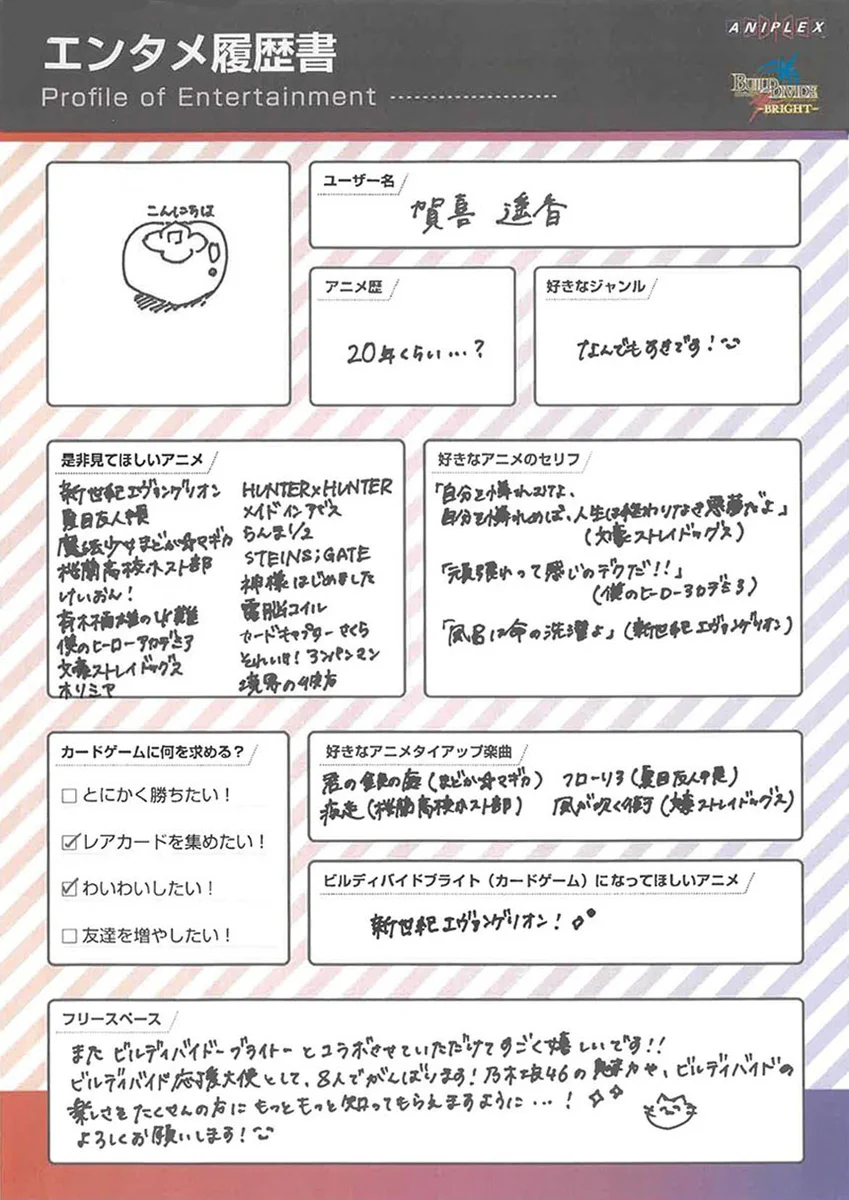 ANIPLEX
エンタメ履歴書
Profile of Entertainment
BUILD DIVIDE
-BRIGHT-
こんにちは
ユーザー名
賀喜 遥香
アニメ歴
20年くらい…？
好きなジャンル
なんでもすきです！
是非見てほしいアニメ
新世紀エヴァンゲリオン
夏目友人帳
魔法少女まどか☆マギカ
桜蘭高校ホスト部
けいおん！
斉木楠雄のΨ難
僕のヒーローアカデミア
文豪ストレイドッグス
ホリミヤ
HUNTER×HUNTER
メイドインアビス
らんま1/2
STEINS;GATE
神様はじめました
電脳コイル
カードキャプターさくら
それいけ！アンパンマン
境界の彼方
好きなアニメのセリフ
「自分を憐れむなよ、
自分を憐れめば、人生は終わりなき悪夢だよ」
(文豪ストレイドッグス)
「頑張れって感じのデクだ!!」
(僕のヒーローアカデミア)
「風呂は命の洗濯よ」(新世紀エヴァンゲリオン)
カードゲームに何を求める？
とにかく勝ちたい！
レアカードを集めたい！
わいわいしたい！
友達を増やしたい！
好きなアニメタイアップ楽曲
君の銀の庭(まどか☆マギカ) フローリア(夏目友人帳)
疾走(桜蘭高校ホスト部) 風が吹く街(文豪ストレイドッグス)
ビルディバイドブライト（カードゲーム）になってほしいアニメ
新世紀エヴァンゲリオン！
フリースペース
また ビルディバイドーブライトー とコラボさせていただけてすごく嬉しいです!!
ビルディバイド応援大使として、8人でがんばります！乃木坂46の魅力や、ビルディバイドの
楽しさをたくさんの方に もっともっと知ってもらえますように…！
よろしくお願いします！